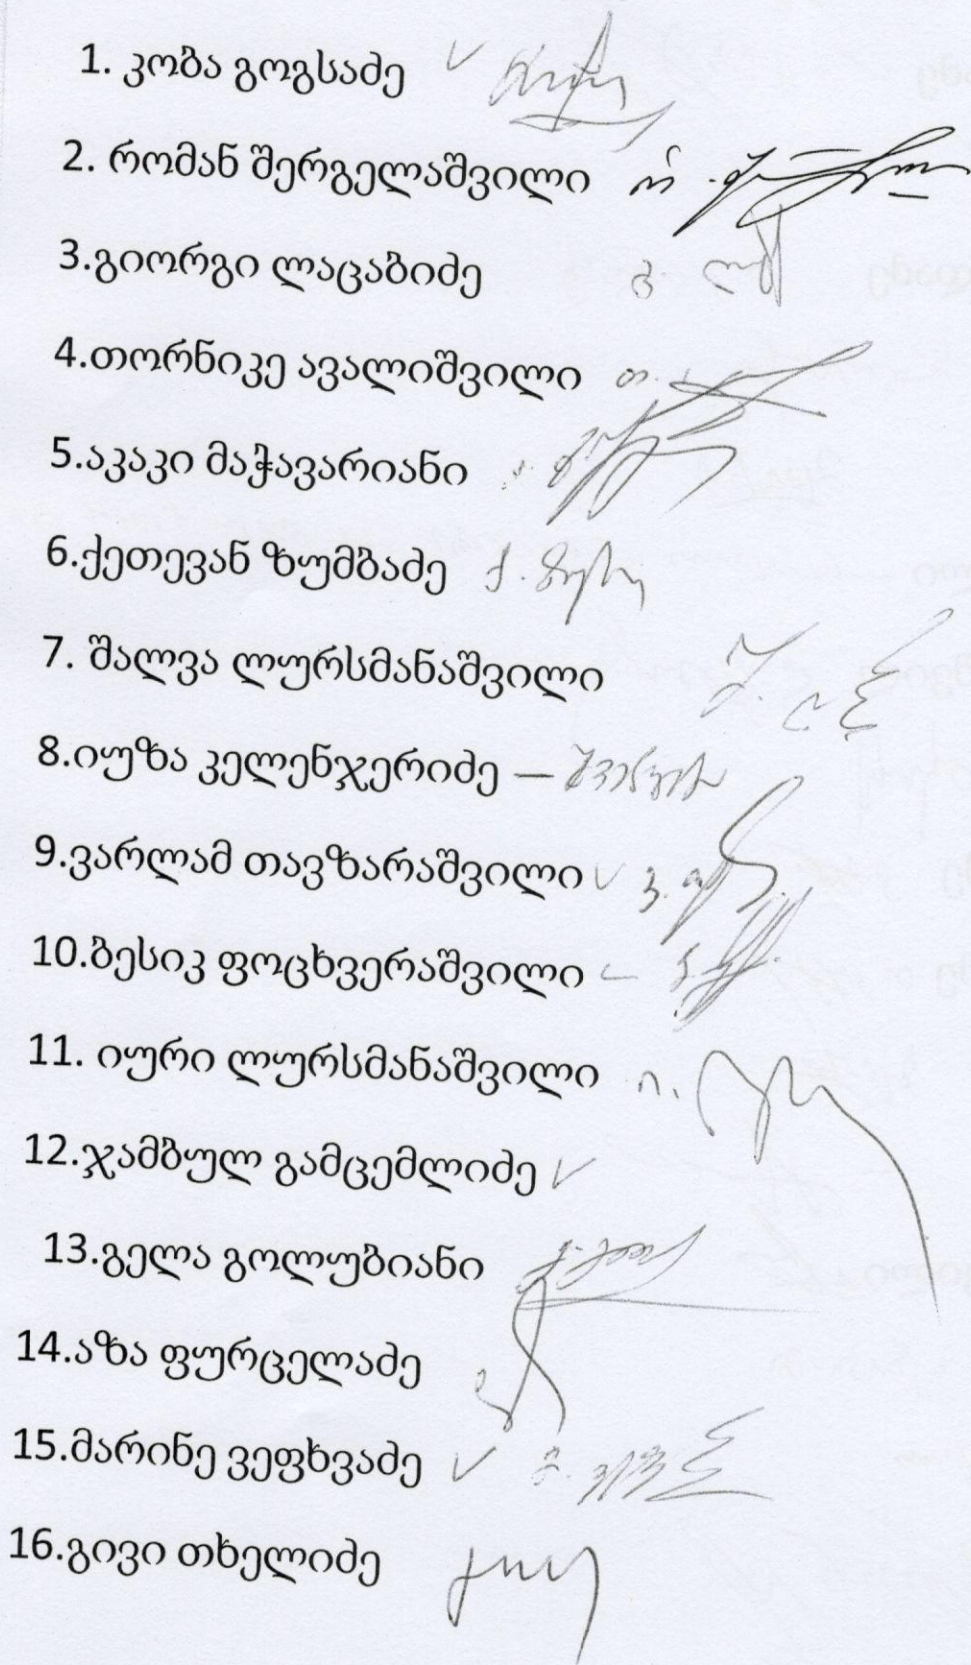 1. კობა გოგსაძე
2. რომან შერგელაშვილი
3.გიორგი ლაცაბიძე
4.თორნიკე ავალიშვილი
5.აკაკი მაჭავარიანი
6.ქეთევან ზუმბაძე
7. შალვა ლურსმანაშვილი
8.იუზა კელენჯერიძე —
9.ვარლამ თავზარაშვილი
10.ბესიკ ფოცხვერაშვილი
11. იური ლურსმანაშვილი
12.ჯამბულ გამცემლიძე
13.გელა გოლუბიანი
14.აზა ფურცელაძე
15.მარინე ვეფხვაძე
16.გივი თხელიძე